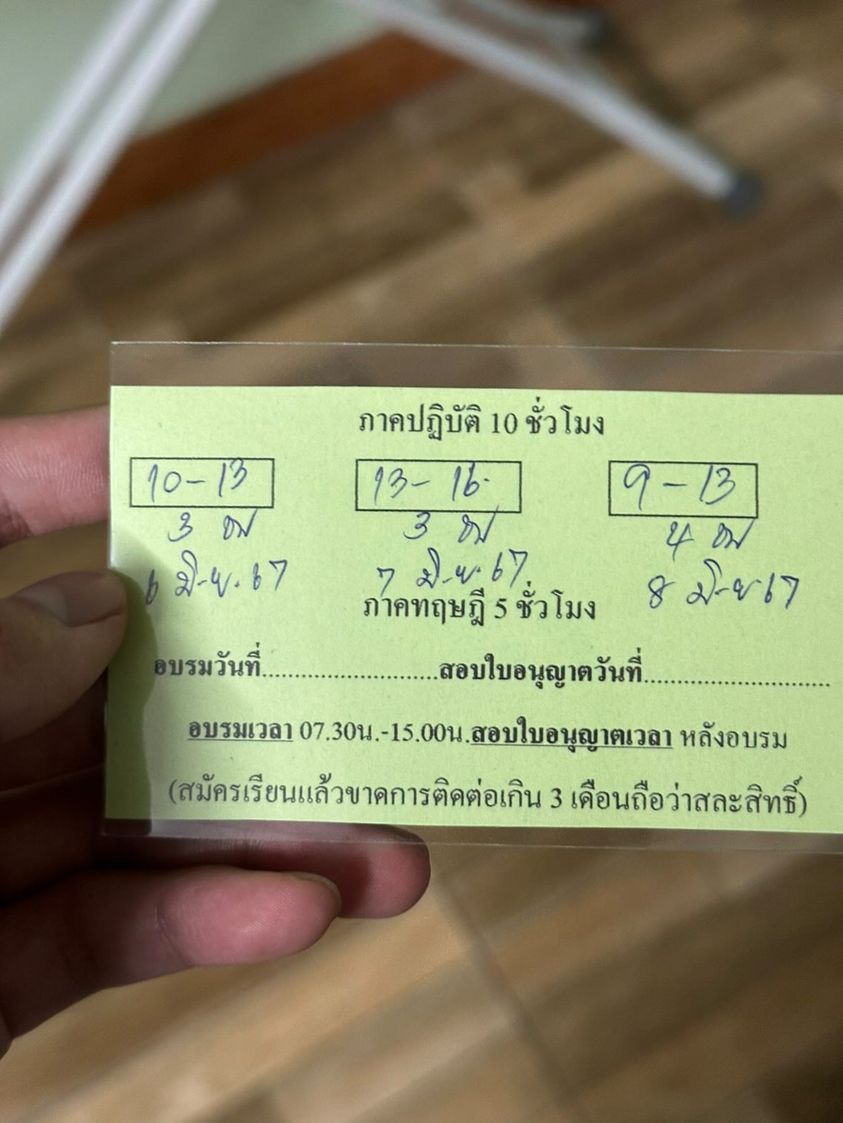 ภาคปฏิบัติ 10 ชั่วโมง
10-13 13-16. 9-13
3 ชม 3 ชม 4 ชม
6 มิ.ย. 67 7 มิ.ย. 67 8 มิ.ย 67
ภาคทฤษฎี 5 ชั่วโมง
อบรมวันที่...........................สอบใบอนุญาตวันที่.............................
อบรมเวลา 07.30น.-15.00น.สอบใบอนุญาตเวลา หลังอบรม
(สมัครเรียนแล้วขาดการติดต่อเกิน 3 เดือนถือว่าสละสิทธิ์)